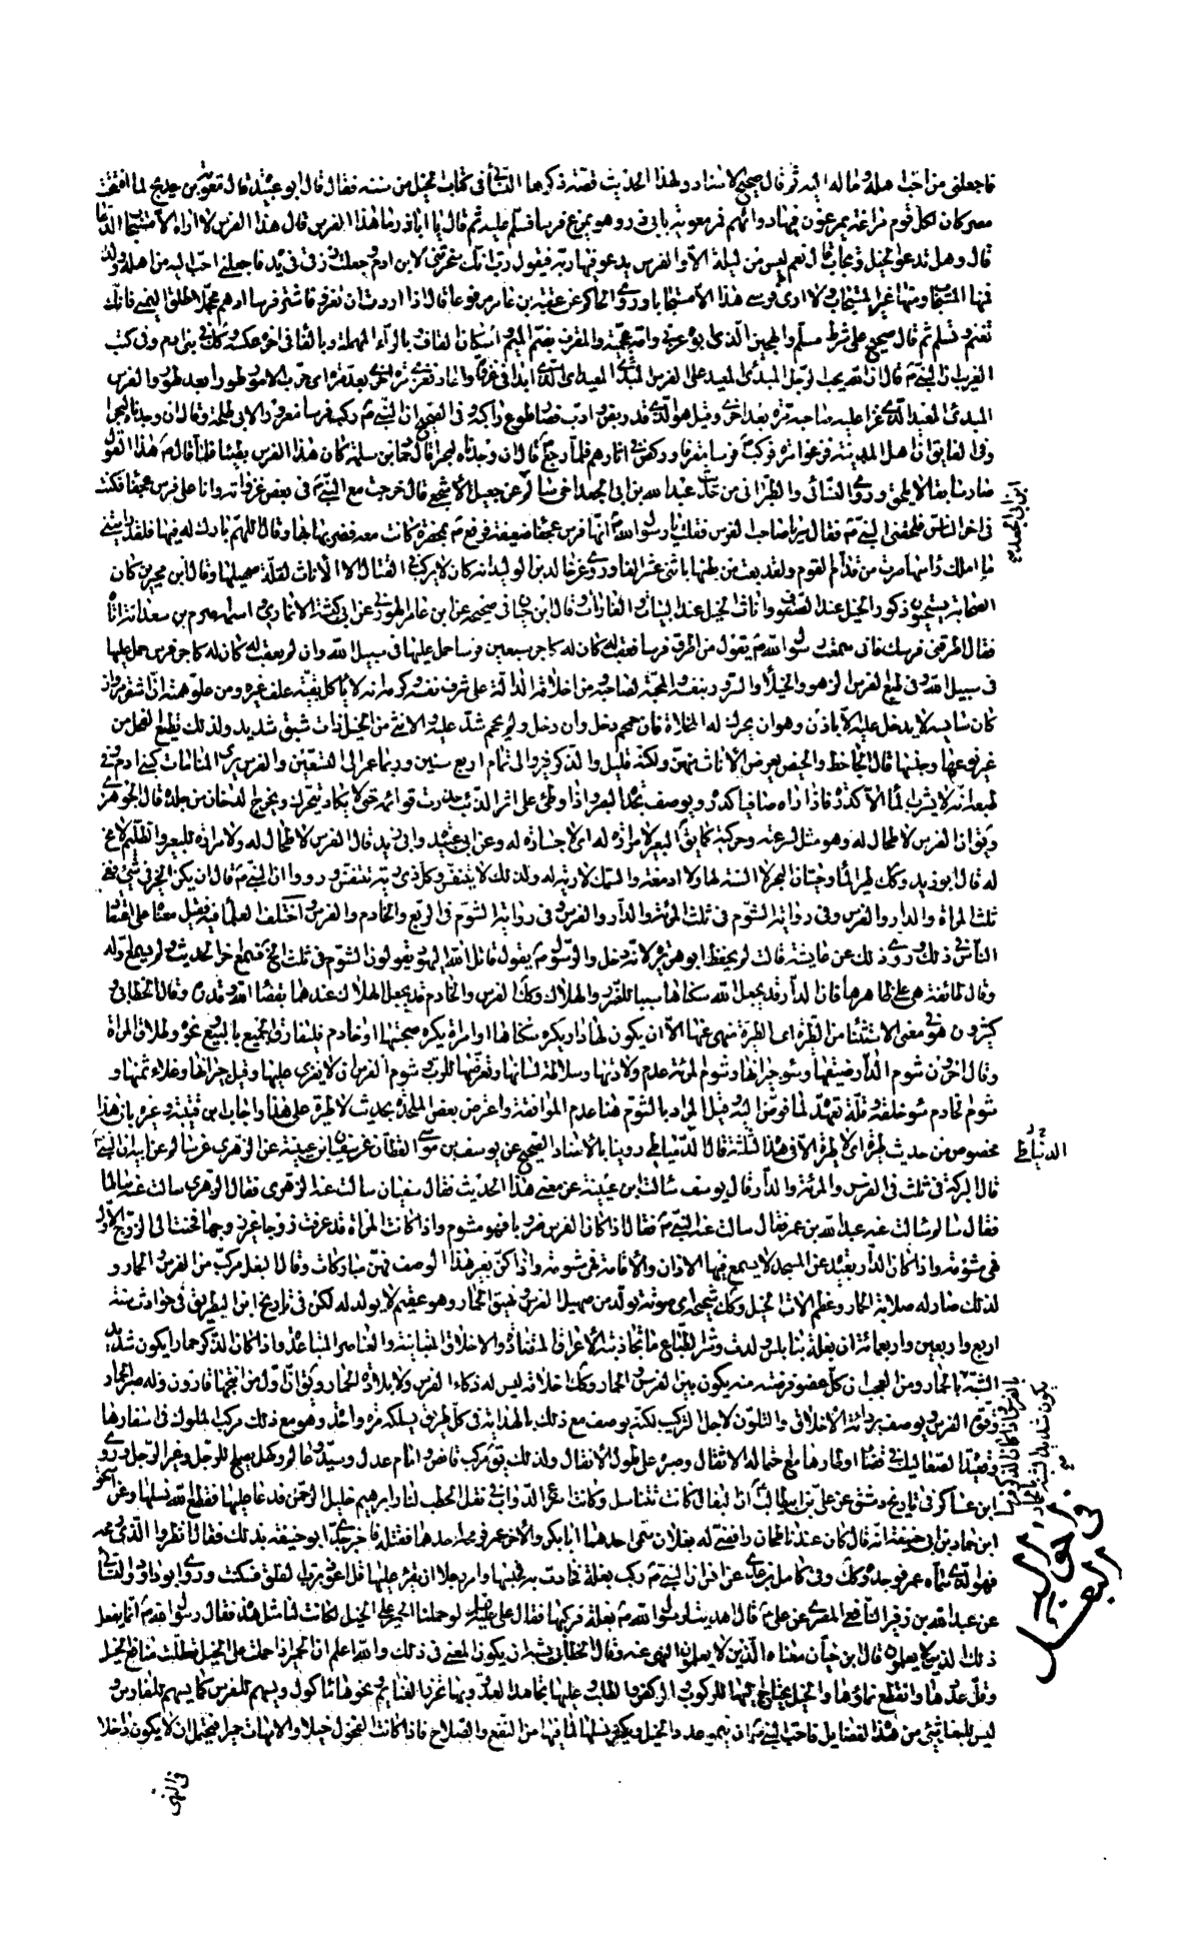 فاجعلنى من احب اهله وماله اليه ثم قال صحيح الاسناد ولهذا الحديث قصة ذكرها النسائى فى كتاب الخيل من سننه فقال قال ابو عبيدة قال معوية بن حديج لما افتتحت
مصر كان لكل قوم مراغة يمرغون فيها دوابهم فمر معوية بابى ذر وهو يمرغ فرسا فسلم عليه ثم قال يا اباذر ما هذا الفرس قال هذا الفرس لا اراه الا مستجاب الدعا
قال وهل تدعو الخيل وتجاب قال نعم ليس من ليلة الا والفرس يدعو فيها ربه فيقول رب انك سخرتنى لابن ادم وجعلت رزقى فى يده فاجعلنى احب اليه من اهله وولده
فمنها المستجاب ومنها غير المستجاب ولا ارى فرسى هذا الا مستجابا وروى الحاكم عن عقبة بن عامر مرفوعا قال اذا اردت ان تغزو فاشتر فرسا ادهم محجلا طلق اليمنى فانك
تغنم وتسلم ثم قال صحيح على شرط مسلم والهجين الذى ابوه عربى وامه عجمية والمقرف بضم الميم واسكان القاف وبالراء المهملة وبالفا فى اخره عكسه كذلك فى بنى ادم وفى كتب
الغريب ان النبى ﷺ قال ان الله يحب الرجل المبدئ المعيد على الفرس المبدئ المعيد اى الذى ابدا فى غزوه واعاد فغزى مرة اخرى بعد مرة اى جرب الامور طورا بعد طور والفرس
المبدئ المعيد الذى غزا عليه صاحبه مرة بعد اخرى وقيل هو الذى قد ريض وادب فصار طوع راكبه وفى الصحيح ان النبى ﷺ ركب فرسا معروريا لابى طلحة وقال ان وجدناه لبحرا
وفى الفايق ان اهل المدينة فزعوا مرة فركب ﷺ فرسا عريا وركض فى اثارهم فلما رجع قال ان وجدناه لبحرا قال حماد بن سلمة كان هذا الفرس بطيئا فلما قال ﷺ هذا القول
صار سابقا لا يلحق وروى النسائى والطبرانى من حديث عبد الله بن ابى الجعد اخى سالم عن جعيل الاشجعى قال خرجت مع النبى ﷺ فى بعض غزواته وانا على فرس عجفا فكنت
فى اخر الناس فلحقنى النبى ﷺ فقال سر يا صاحب الفرس فقلت يا رسول الله انها فرس عجفا ضعيفة فرفع ﷺ مخفقة كانت معه فضربها بها وقال اللهم بارك له فيها فلقد رايتنى
ما املك راسها صرت من قدام القوم ولقد بعت من بطنها باثنى عشر الفا وروى عن خالد بن الوليد انه كان لا يركب فى القتال الا الاناث لقلة صهيلها وقال ابن محيريز كان
الصحابة يستحبون ذكور الخيل عند الصفوف واناث الخيل عند البيات والغارات قال ابن حبان فى صحيحه عن ابن عامر الهوزنى عن ابى كبشة الانمارى واسمه اصرم بن سعد انه اتاه
فقال اطرقنى فرسك فانى سمعت رسول الله ﷺ يقول من اطرق فرسا فعقب له كان له كاجر سبعين فرسا حمل عليها فى سبيل الله وان لم يعقب له كان له كاجر فرس حمل عليها
فى سبيل الله وفى طبع الفرس الزهو والخيلاء والسرور بنفسه والمحبة لصاحبه ومن اخلاقه الدالة على شرف نفسه وكرمه انه لا ياكل بقية علف غيره ومن علو همته ان اشقر مروان
كان سايسه لا يدخل عليه الا باذن وهو ان يحرك له المخلاة فان حمحم دخل وان دخل ولم يحمحم شد عليه والانثى من الخيل ذات شبق شديد ولذلك تطيع الفحل من
غير نوعها وجنسها قال الجاحظ والحيض يعرض للاناث منهن ولكنه قليل والذكر ينزو الى تمام اربع سنين وربما عمر الى التسعين والفرس يرى المنامات كبنى ادم وفى
طبعه انه لا يشرب الماء الا كدرا فاذا راه صافيا كدره ويوصف بحدة البصر واذا وطئ على اثر الذئب خدرت قوائمه حتى لا يكاد يتحرك ويخرج الدخان من جلده قال الجوهرى
ويق ان الفرس لا طحال له وهو مثل لسرعته وحركته كما يق البعير لا مرارة له اى لا جسارة له وعن ابى عبيد وابى زيد قال الفرس لا طحال له ولا مرارة للبعير والظليم لا مخ
له قال ابو زيد وكذلك طير الماء وحيتان البحر لا السنة لها ولا ادمغة والسمك لا رية له ولذلك لا يتنفس وكل ذى رية يتنفس ورووا ان النبى ﷺ قال ان يكن الخير فى شئ ففى
ثلث المراة والدار والفرس وفى رواية الشوم فى ثلث المرئة والدار والفرس وفى رواية الشوم فى الربع والخادم والفرس واختلف العلماء فيه فقيل معناه على اعتقاد
الناس ذلك وروى ذلك عن عايشة قالت لم يحفظ ابو هريرة لانه دخل والرسول ﷺ يقول قاتل الله اليهود يقولون الشوم فى ثلث الخ فسمع اخر الحديث ولم يسمع اوله
وقال طائفة هى على ظاهرها فان الدار قد يجعل الله سكناها سببا للضرر والهلاك وكذا الفرس والخادم قد يجعل الهلاك عندهما بقضاء الله وقدره وقال الخطابى و
كثيرون هو فى معنى الاستثناء من الطيرة اى الطيرة منهى عنها الا ان يكون لها دار يكره سكناها او امراة يكره صحبتها او خادم فليفارق الجميع بالبيع ونحوه وطلاق المراة
وقال اخرون شوم الدار ضيقها وسوء جيرانها وشوم المرئة عدم ولادتها وسلاطة لسانها وتعرضها للريب وشوم الفرس ان لا يغزى عليها وقيل حرانها وغلاء ثمنها و
شوم الخادم سوء خلقه وقلة تعهده لما فوض اليه وقيل المراد بالشوم هنا عدم الموافقة واعترض بعض الملحدة بحديث لا طيرة على هذا واجاب ابن قتيبة وغيره بان هذا
مخصوص من حديث لا طيرة اى لا طيرة الا فى هذه الثلثة قال الدمياطى روينا بالاسناد الصحيح عن يوسف بن موسى القطان عن سفيان بن عيينة عن الزهرى عن سالم عن ابيه ان النبى ﷺ
قال البركة فى ثلث فى الفرس والمرئة والدار قال يوسف سالت ابن عيينة عن معنى هذا الحديث فقال سفيان سالت عنه الزهرى فقال الزهرى سالت عنه سالما
فقال سالم سالت عنه عبد الله بن عمر فقال سالت عنه النبى ﷺ فقال اذا كان الفرس ضروبا فهو مشوم واذا كانت المراة قد عرفت زوجا غير زوجها فحنت الى الزوج الاول
فهى مشومة واذا كان الدار بعيدة عن المسجد لا يسمع فيها الاذان والاقامة فهى مشومة واذا كن بغير هذا الوصف فهن مباركات وقال البغل مركب من الفرس والحمار و
لذلك صار له صلابة الحمار وعظم الات الخيل وكذلك شحيجه اى صوته تولد من صهيل الفرس ونهيق الحمار وهو عقيم لا يولد له لكن فى تاريخ ابن البطريق فى حوادث سنة
اربع واربعين واربعمائة ان بغلة بنابلس ولدت وشر الطباع ما تجاذبته الاعراق المتضادة والاخلاق المتباينة والعناصر المتباعدة واذا كان الذكر حمارا يكون شديد
الشبه بالحمار ومن العجب ان كل عضو فرضته منه يكون بين الفرس والحمار وكذلك اخلاقه ليس له ذكاء الفرس ولا بلادة الحمار ويق ان اول من انتجها قارون وله صبر الحمار
وقوة الفرس ويوصف برداءة الاخلاق والتلون لاجل التركيب لكنه يوصف مع ذلك بالهداية فى كل طريق يسلكه مرة واحدة وهو مع ذلك مركب الملوك فى اسفارها
وقعيدة الصعاليك فى قضاء اوطارها مع احتماله للاثقال وصبره على طول الايغال ولذلك يق مركب قاض وامام عدل وسيد وعالم وكهل يصلح للرجل وغير الرجل وروى
ابن عساكر فى تاريخ دمشق عن على بن ابيطالب ان البغال كانت تتناسل وكانت اسرع الدواب فى نقل الحطب لنار ابراهيم خليل الرحمن فدعا عليها فقطع الله نسلها وعن اسمعيل
ابن حماد بن ابى حنيفة انه قال كان عندنا طحان رافضى له بغلان سمى احدهما ابا بكر والاخر عمر فرمحه احدهما فقتله فاخبر جدى ابو حنيفة بذلك فقال انظروا الذى رمحه
فهو الذى سماه عمر فوجدوه كذلك وفى كامل ابن عدى عن انس ان النبى ﷺ ركب بغلة فحادت به فحبسها وامر رجلا ان يقرء عليها قل اعوذ برب الفلق فسكنت وروى ابو داود والنسائى
عن عبد الله بن زرير الغافقى المصرى عن على ﷺ قال اهديت لرسول الله ﷺ بغلة فركبها فقال على لو حملنا الحمير على الخيل لكانت لنا مثل هذه فقال رسول الله ﷺ انما يفعل
ذلك الذين لا يعلمون قال ابن حبان معناه الذين لا يعلمون النهى عنه وقال الخطابى يشبه ان يكون المعنى فى ذلك والله اعلم ان الحمير اذا حملت على الخيل تعطلت منافع الخيل
وقل عددها وانقطع نماؤها والخيل يحتاج اليها للركوب والركض والطلب وعليها يجاهد العدو وبها تحرز الغنايم ولحومها ماكول ويسهم للفرس كما يسهم للفارس و
ليس للبغل شئ من هذه الفضايل فاحب النبى ﷺ ان ينمو عدد الخيل ويكثر نسلها لما فيها من النفع والصلاح فاذا كانت الفحول خيلا والامهات حمرا فيحتمل ان لا يكون داخلا
فى النهى
ابن ابى الجعد
الدمياطى
بالفرس واذا كان الذكر فرسا يكون شديد الشبه بالحمار
فى احوال البغال